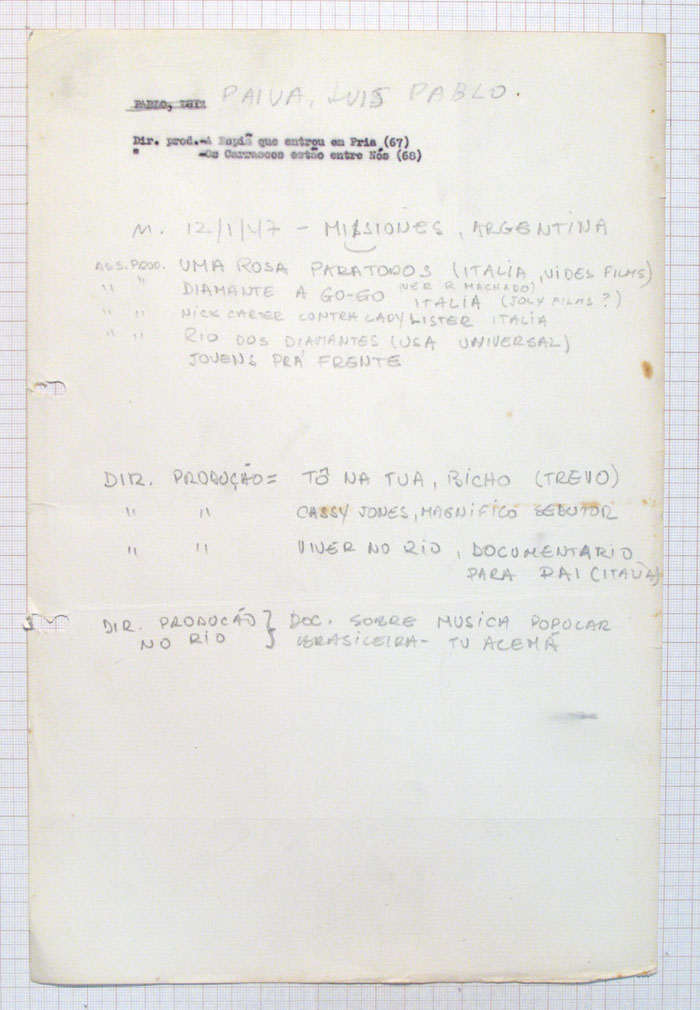 PABLO, LUIZ PAIVA, LUIS PABLO.
Dir. prod.-A Espiã que entrou em Fria (67)
" -Os Carrascos estão entre Nós (68)
M. 12/1/47 - MISSIONES, ARGENTINA
ASS. PROD. UMA ROSA PARA TODOS (ITALIA, VIDES FILMS)
" " DIAMANTE A GO-GO (VER R. MACHADO) ITALIA (JOLY FILMS?)
" " NICK CARTER CONTRA LADY LISTER ITALIA
" " RIO DOS DIAMANTES (USA UNIVERSAL)
JOVENS PRÁ FRENTE
DIR. PRODUÇÃO = TÔ NA TUA, BICHO (TREVO)
" " CASSY JONES, MAGNÍFICO SEDUTOR
" " VIVER NO RIO, DOCUMENTARIO
PARA RAI (ITALIA)
DIR. PRODUÇÃO } DOC. SOBRE MUSICA POPULAR
NO RIO BRASILEIRA - TV ALEMÃ